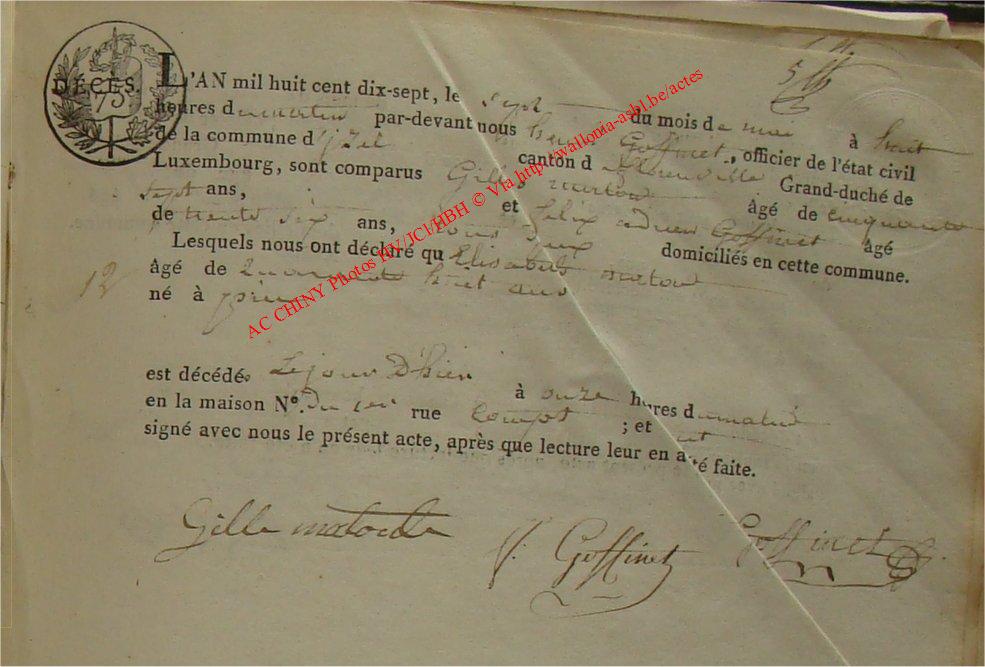 DÉCÈS.
75
L'AN mil huit cent dix-sept, le sept du mois de mai à huit
heures du matin par-devant nous henri Goffinet, officier de l'état civil
de la commune d'jzel canton d florenville Grand-duché de
Luxembourg, sont comparus Gilles matout âgé de cinquante
sept ans, et felix adrien Goffinet âgé
de trente six ans, tous deux domiciliés en cette commune.
Lesquels nous ont déclaré qu Elisabeth matout
âgé de Quarante huit ans
12
né à
est décédé Le jour D'hier à onze heures du matin
en la maison Nº. rue ; et ont
signé avec nous le présent acte, après que lecture leur en a été faite.
Gille
f. Goffinet
Goffinet
AC CHINY Photos HV/JCl/HBH © Via http://wallonia-asbl.be/actes